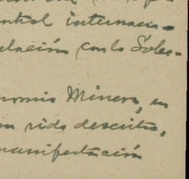 ntrol internacio-
elación con la Sobe-
onomia Minera, en
an sido descritos,
manifestación